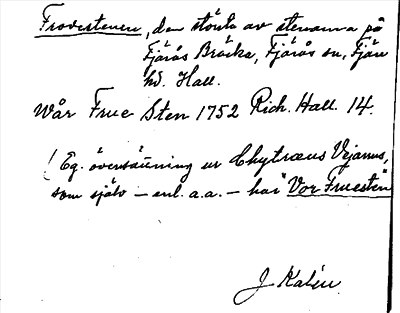 Frovestenen, den största av stenarna på
Fjärås Bräcka, Fjärås sn, Fjäre
hd. Hall.
Wår Frue Sten 1752 Rich. Hall. 14.
(Eg. översättning ur Chytræus Vejanus,
som själv – enl. a.a. – har "Vor Fruesten"
J Kalén.